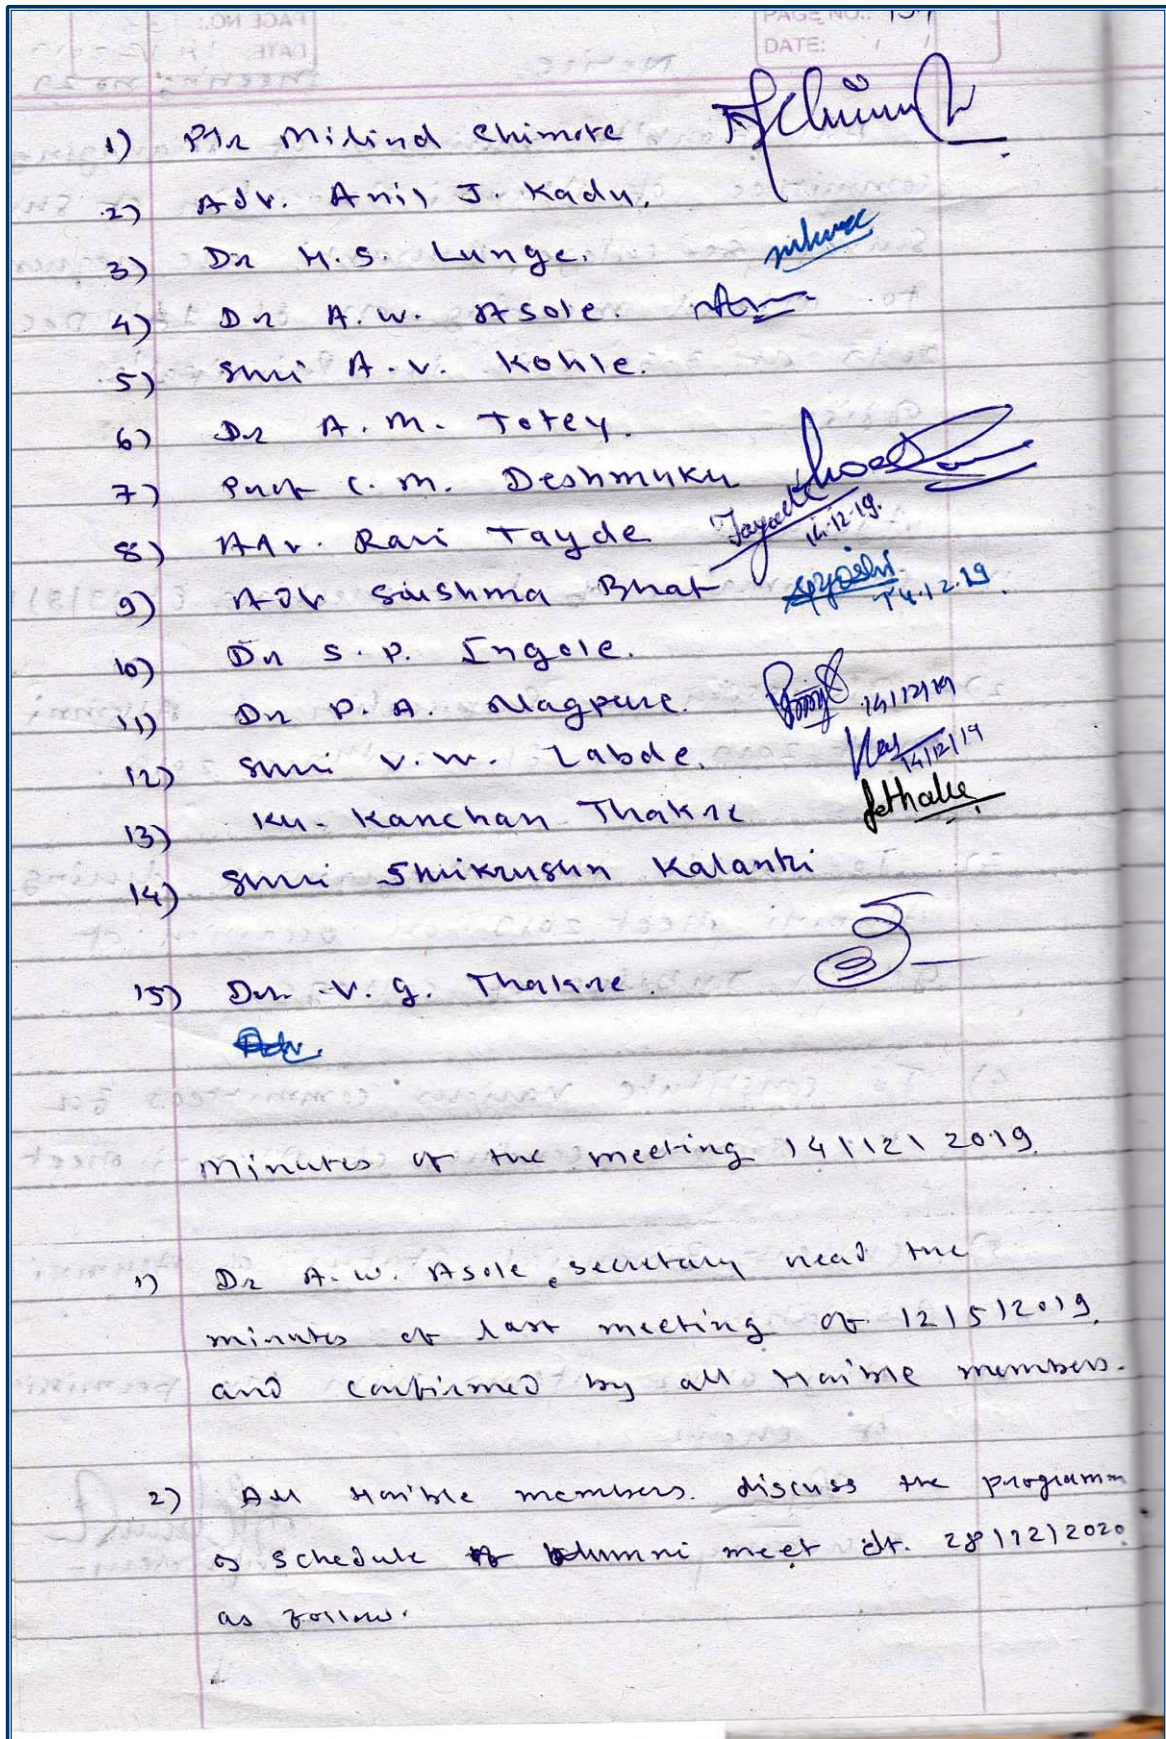 PAGE NO.:
DATE: / /
1) Mr Milind Chimote
2) Adv. Anil J. Kadu.
3) Dr H.S. Lunge.
4) Dr A.W. Asole.
5) Shri A.V. Kohle.
6) Dr A.M. Totey.
7) Prof C.M. Deshmukh
14.12.19.
8) Adv. Ravi Tayde
9) Adv Sushma Bhat
14.12.19
10) Dr S.P. Ingole.
11) Dr P.A. Nagpure.
14/12/19
12) Shri V.W. Labde.
14/12/19
13) Ku. Kanchan Thakre
14) Shri Shrikrushn Kalantri
15) Dr. V.G. Thakre.
Minutes of the meeting 14/12/2019
1) Dr A.W. Asole, secretary read the
minutes of last meeting of 12/5/2019
and confirmed by all Hon'ble members.
2) All Hon'ble members. discuss the programm
schedule Alumni meet dt. 28/12/2020
as follow.